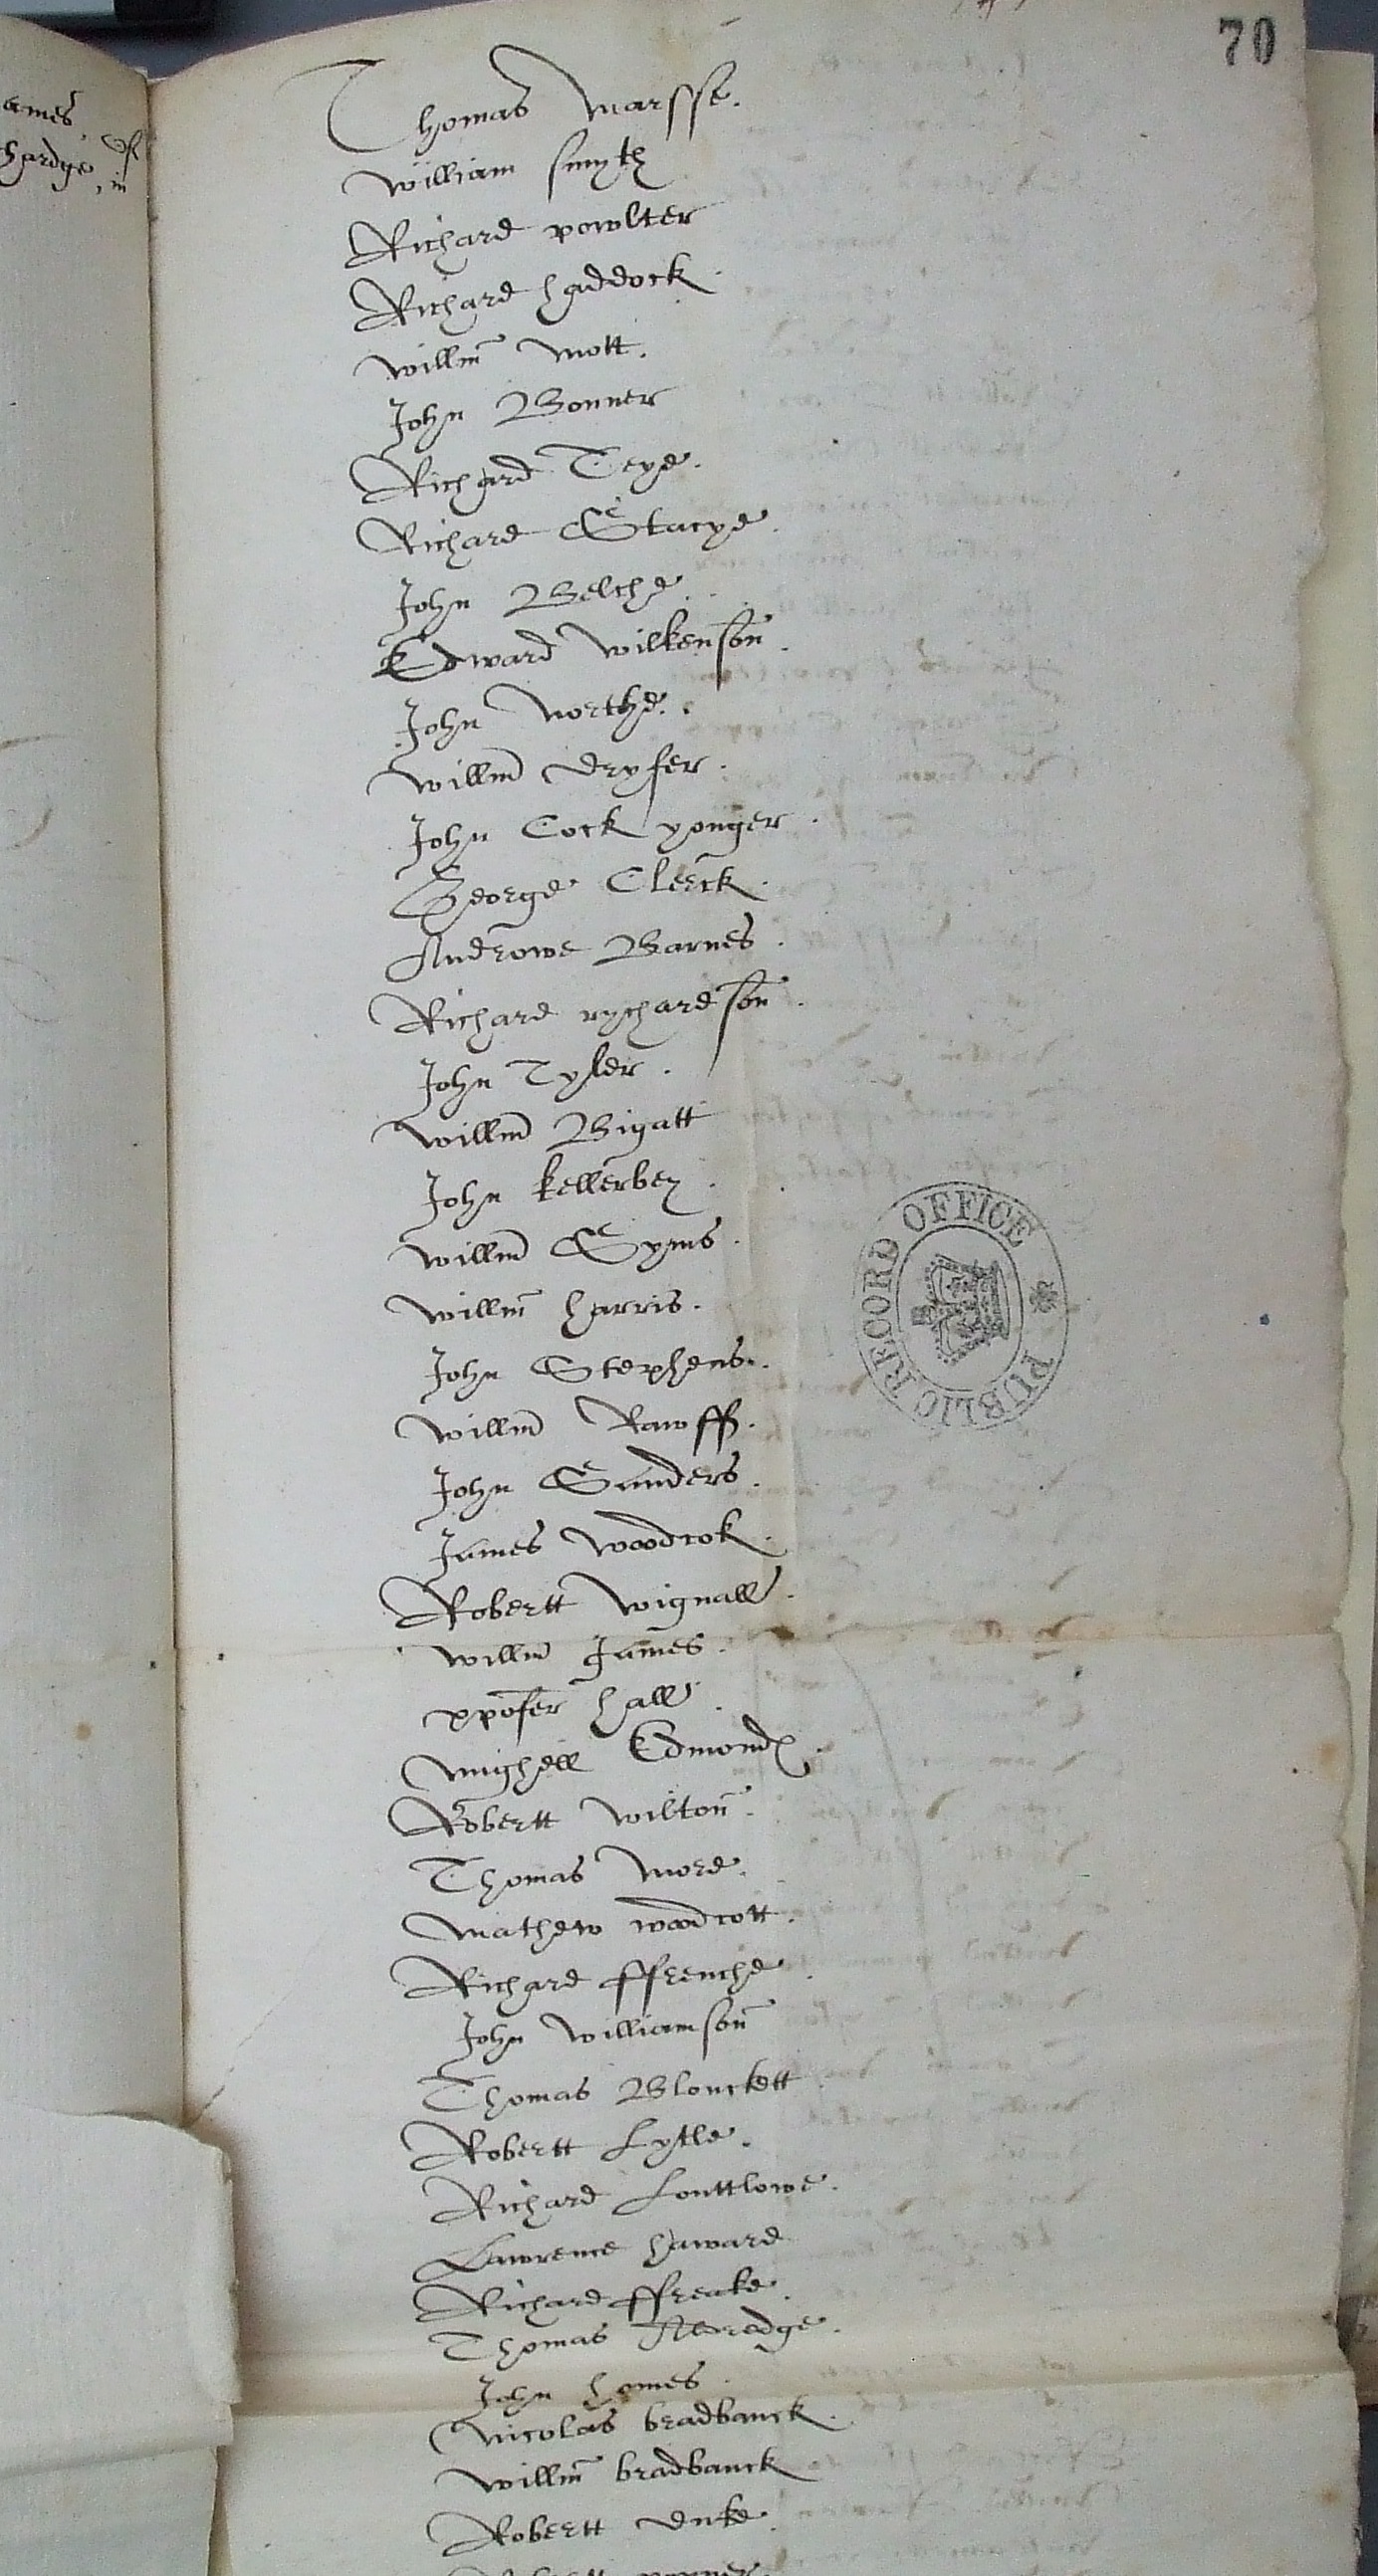 70
ames,
hardge, in
Thomas Marsse.
William Smyth
Richard powlter
Richard haddock.
Willm Mott.
John Bonner
Richard Teye.
Richard Stacye.
John Belche.
Edward Wilkenson.
John Northe.
Willm dryfer.
John Cock yonger.
George Clerck.
Androwe Barnes.
Richard rychardson.
John Tyler.
Willm Bigatt
John kellerbey.
Willm Syms.
Willm harris.
John Stephens.
Willm Rawff.
John Sanders.
James Woodcok.
Robertt Wignall.
Willm James.
xpofer hall.
Mighell Edmond
Robertt Wilton.
Thomas More.
Mathew Woodcott.
Richard ffrenche.
John Williamson
Thomas Blonckett
Robertt Lytle.
Richard Louttlowe.
Lawrence haward
Richard ffreake.
Thomas
John homes.
Nicolas bradbanck.
Willm bradbanck
Robertt duke.
PUBLIC RECORD OFFICE